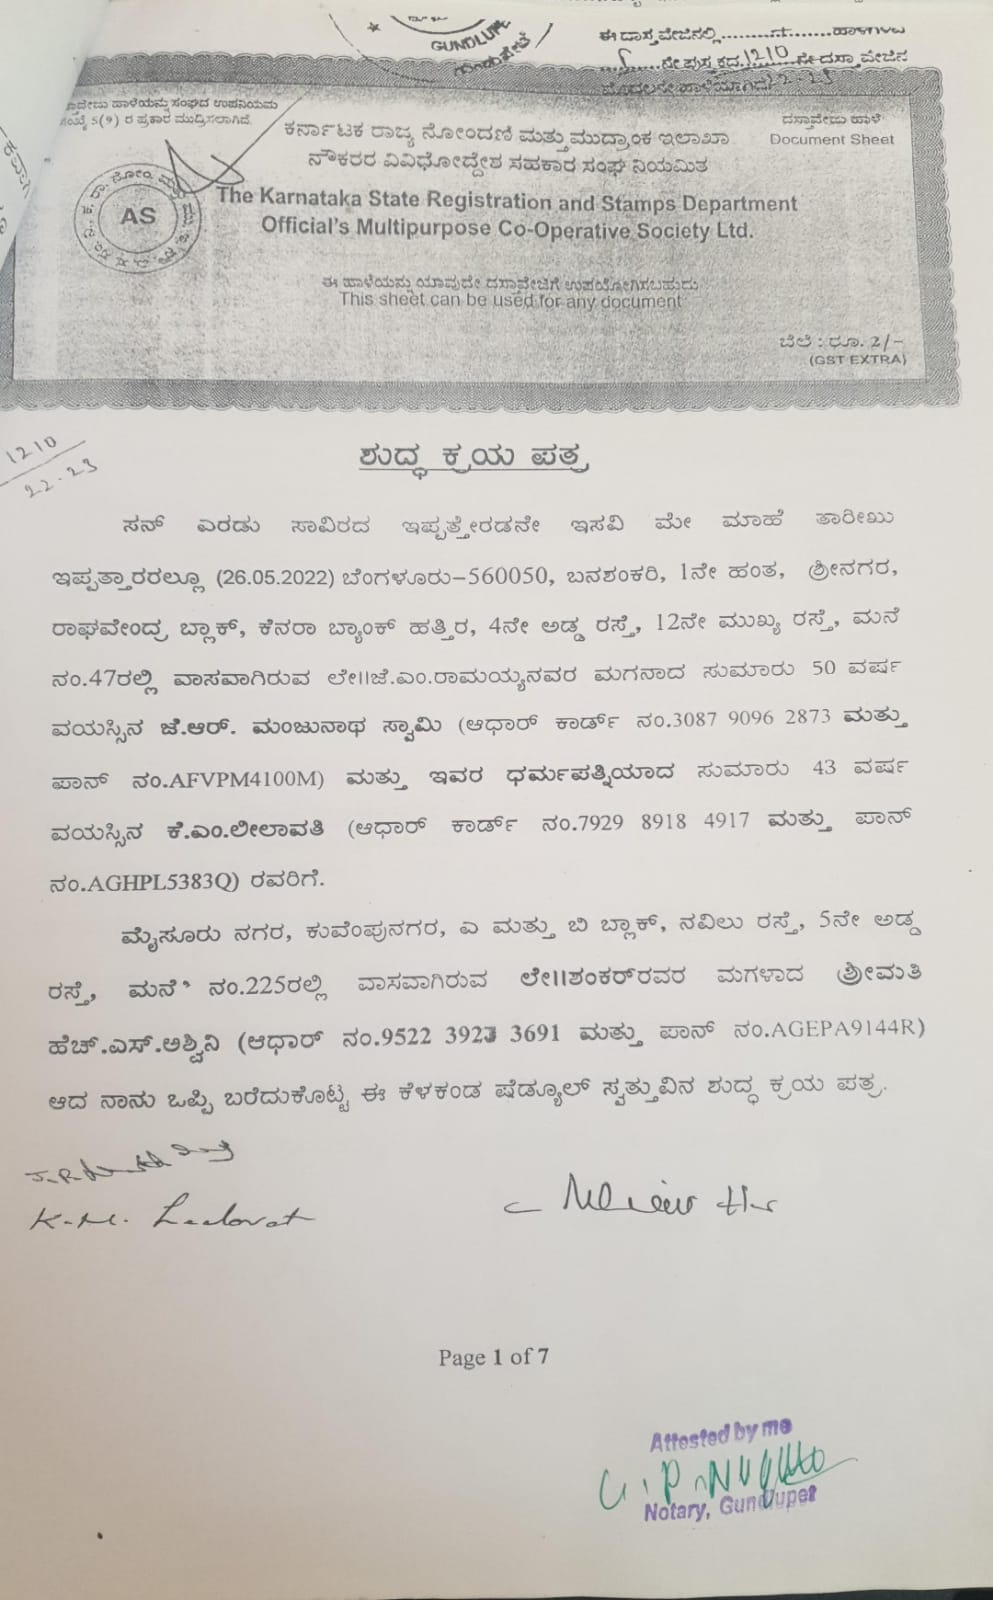 GUNDLUPE
ಈ ದಾಸ್ತವೇಜಿನಲ್ಲಿ..............ಹಾಳೆಗಳು
ನೇ ಪುಸ್ತಕದ 1210 ನೇ ದಸ್ತಾವೇಜಿನ
ಸಂಖ್ಯೆ 5(9) ರ ಪ್ರಕಾರ ಮುದ್ರಿಸಲಾಗಿದೆ.
ದಸ್ತಾವೇಜು ಹಾಳೆ
Document Sheet
ಕರ್ನಾಟಕ ರಾಜ್ಯ ನೋಂದಣಿ ಮತ್ತು ಮುದ್ರಾಂಕ ಇಲಾಖಾ
ನೌಕರರ ವಿವಿಧೋದ್ದೇಶ ಸಹಕಾರ ಸಂಘ ನಿಯಮಿತ
AS
The Karnataka State Registration and Stamps Department
Official's Multipurpose Co-Operative Society Ltd.
ಈ ಹಾಳೆಯನ್ನು ಯಾವುದೇ ದಸ್ತಾವೇಜಿಗೆ ಉಪಯೋಗಿಸಬಹುದು
This sheet can be used for any document
ಬೆಲೆ : ರೂ. 2/-
(GST EXTRA)
1210
22-23
ಶುದ್ಧ ಕ್ರಯ ಪತ್ರ
ಸನ್ ಎರಡು ಸಾವಿರದ ಇಪ್ಪತ್ತೇರಡನೇ ಇಸವಿ ಮೇ ಮಾಹೆ ತಾರೀಖು
ಇಪ್ಪತ್ತಾರರಲ್ಲೂ (26.05.2022) ಬೆಂಗಳೂರು-560050, ಬನಶಂಕರಿ, 1ನೇ ಹಂತ, ಶ್ರೀನಗರ,
ರಾಘವೇಂದ್ರ ಬ್ಲಾಕ್, ಕೆನರಾ ಬ್ಯಾಂಕ್ ಹತ್ತಿರ, 4ನೇ ಅಡ್ಡ ರಸ್ತೆ, 12ನೇ ಮುಖ್ಯ ರಸ್ತೆ, ಮನೆ
ನಂ.47ರಲ್ಲಿ ವಾಸವಾಗಿರುವ ಲೇ||ಜೆ.ಎಂ.ರಾಮಯ್ಯನವರ ಮಗನಾದ ಸುಮಾರು 50 ವರ್ಷ
ವಯಸ್ಸಿನ ಜೆ.ಆರ್. ಮಂಜುನಾಥ ಸ್ವಾಮಿ (ಆಧಾರ್ ಕಾರ್ಡ್ ನಂ.3087 9096 2873 ಮತ್ತು
ಪಾನ್ ನಂ.AFVPM4100M) ಮತ್ತು ಇವರ ಧರ್ಮಪತ್ನಿಯಾದ ಸುಮಾರು 43 ವರ್ಷ
ವಯಸ್ಸಿನ ಕೆ.ಎಂ.ಲೀಲಾವತಿ (ಆಧಾರ್ ಕಾರ್ಡ್ ನಂ.7929 8918 4917 ಮತ್ತು ಪಾನ್
ನಂ.AGHPL5383Q) ರವರಿಗೆ.
ಮೈಸೂರು ನಗರ, ಕುವೆಂಪುನಗರ, ಎ ಮತ್ತು ಬಿ ಬ್ಲಾಕ್, ನವಿಲು ರಸ್ತೆ, 5ನೇ ಅಡ್ಡ
ರಸ್ತೆ, ಮನೆ ನಂ.225ರಲ್ಲಿ ವಾಸವಾಗಿರುವ ಲೇ||ಶಂಕರ್‌ರವರ ಮಗಳಾದ ಶ್ರೀಮತಿ
ಹೆಚ್.ಎಸ್.ಅಶ್ವಿನಿ (ಆಧಾರ್ ನಂ.9522 3923 3691 ಮತ್ತು ಪಾನ್ ನಂ.AGEPA9144R)
ಆದ ನಾನು ಒಪ್ಪಿ ಬರೆದುಕೊಟ್ಟ ಈ ಕೆಳಕಂಡ ಷೆಡ್ಯೂಲ್ ಸ್ವತ್ತುವಿನ ಶುದ್ಧ ಕ್ರಯ ಪತ್ರ.
Page 1 of 7
Attested by me
Notary, Gundlupet